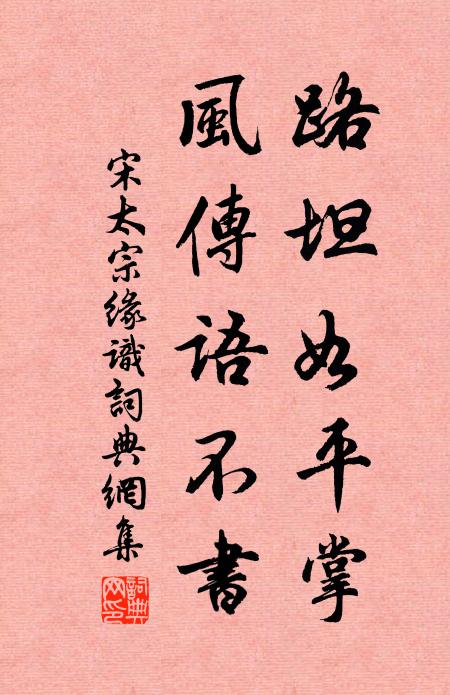 路坦如平掌
風傳語不書
宋太宗緣識詞典網集
詞典網印